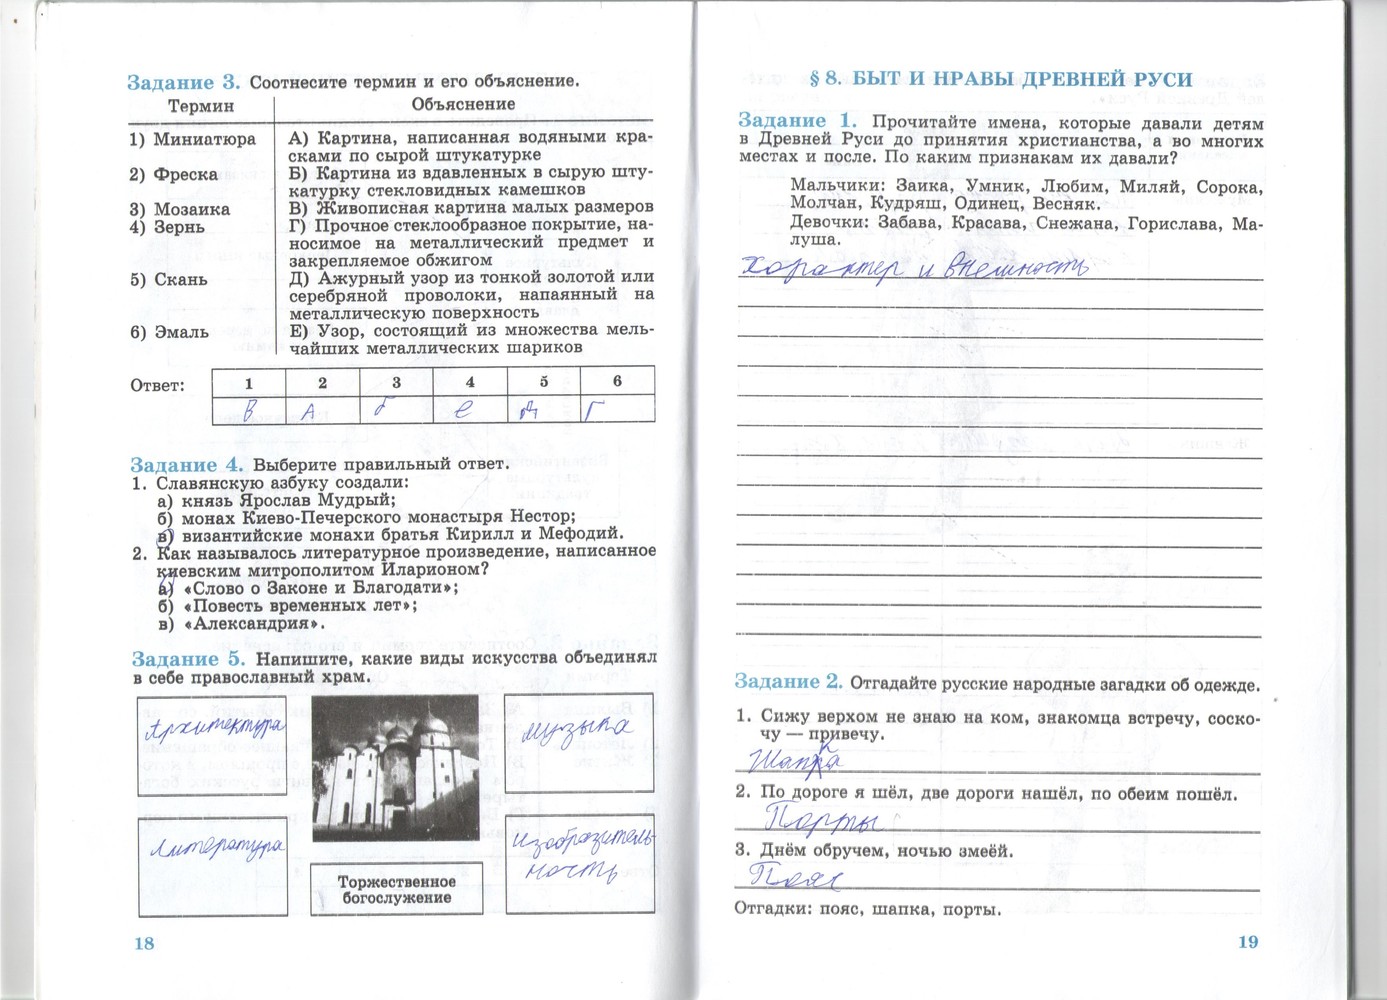 Задание 3. Соотнесите термин и его объяснение.
Термин
Объяснение
1) Миниатюра
А) Картина, написанная водяными кра-
сками по сырой штукатурке
2) Фреска
Б) Картина из вдавленных в сырую шту-
катурку стекловидных камешков
3) Мозаика
В) Живописная картина малых размеров
4) Зернь
Г) Прочное стеклообразное покрытие, на-
носимое на металлический предмет и
закрепляемое обжигом
5) Скань
Д) Ажурный узор из тонкой золотой или
серебряной проволоки, напаянный на
металлическую поверхность
6) Эмаль
Е) Узор, состоящий из множества мель-
чайших металлических шариков
Ответ:
1 2 3 4 5 6
В А Б Е Д Г
Задание 4. Выберите правильный ответ.
1. Славянскую азбуку создали:
а) князь Ярослав Мудрый;
б) монах Киево-Печерского монастыря Нестор;
в) византийские монахи братья Кирилл и Мефодий.
2. Как называлось литературное произведение, написанное
киевским митрополитом Иларионом?
а) «Слово о Законе и Благодати»;
б) «Повесть временных лет»;
в) «Александрия».
Задание 5. Напишите, какие виды искусства объединял
в себе православный храм.
Архитектура
музыка
литература
изобразитель-
ность
Торжественное
богослужение
18
§ 8. БЫТ И НРАВЫ ДРЕВНЕЙ РУСИ
Задание 1. Прочитайте имена, которые давали детям
в Древней Руси до принятия христианства, а во многих
местах и после. По каким признакам их давали?
Мальчики: Заика, Умник, Любим, Миляй, Сорока,
Молчан, Кудряш, Одинец, Весняк.
Девочки: Забава, Красава, Снежана, Горислава, Ма-
луша.
Характер и внешность
Задание 2. Отгадайте русские народные загадки об одежде.
1. Сижу верхом не знаю на ком, знакомца встречу, соско-
чу — привечу.
Шапка
2. По дороге я шёл, две дороги нашёл, по обеим пошёл.
Порты
3. Днём обручем, ночью змеёй.
Пояс
Отгадки: пояс, шапка, порты.
19